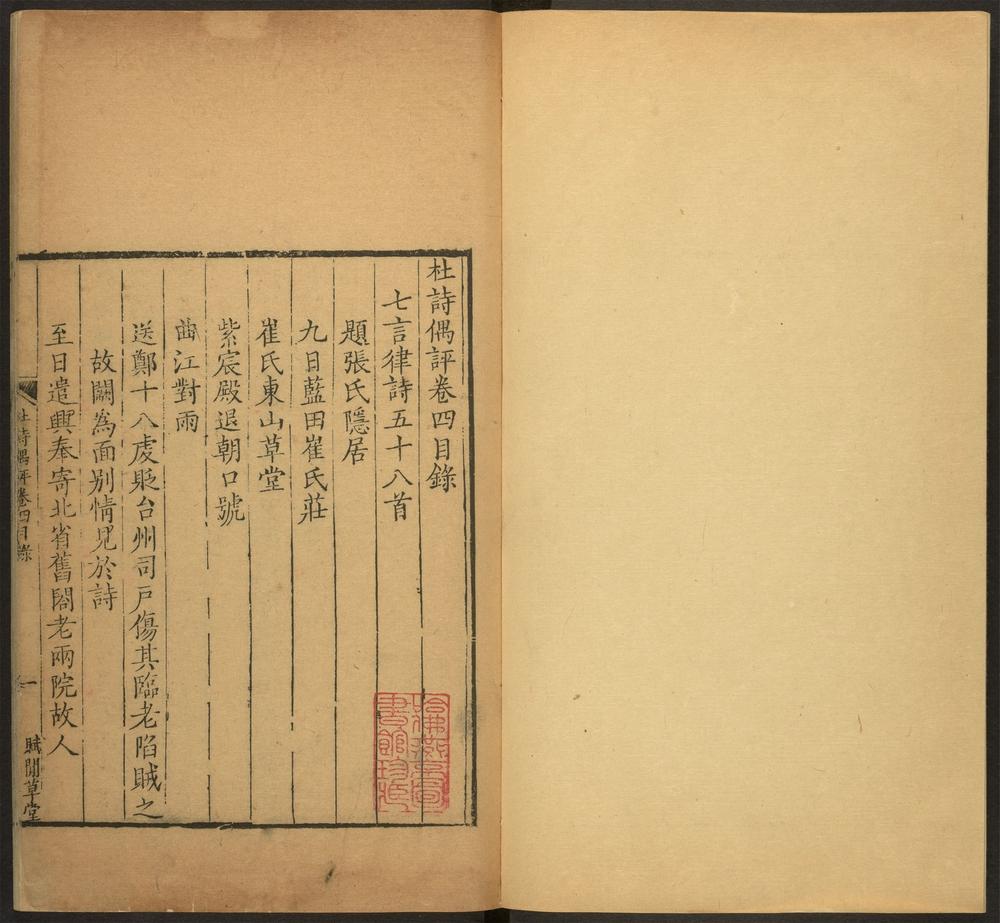 杜詩偶評卷四目錄
七言律詩五十八首
題張氏隱居
九日藍田崔氏莊
崔氏東山草堂
紫宸殿退朝口號
曲江對雨
送鄭十八䖍貶台州司戶傷其臨老陷賊之
故闕為面別情見於詩
至日遣興奉寄北省舊閣老兩院故人
杜詩偶評卷四目錄
一
賦閒草堂
哈佛燕京圖
書館珍藏